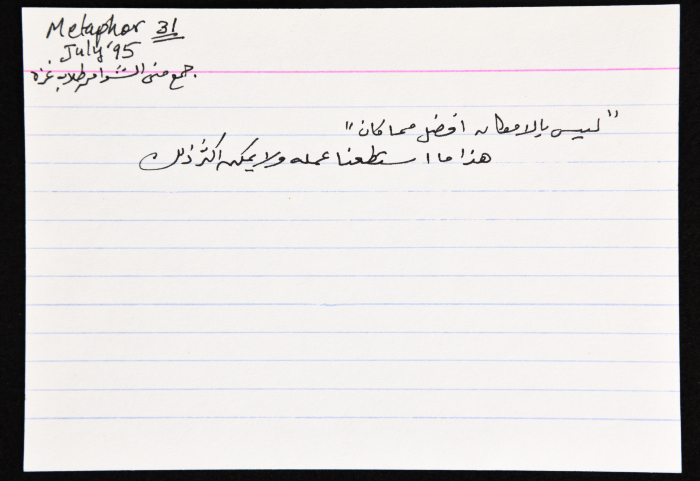 Metaphor 31
July '95
جمع منى الشوا من طلاب غزه.
"ليس بالامكان افضل مما كان"
هذا ما استطعنا عمله ولا يمكن اكثر ذلك